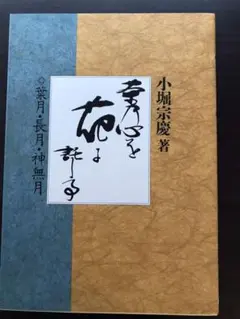 小堀宗慶 著
茶心を
花に
託す
○葉月・長月・神無月